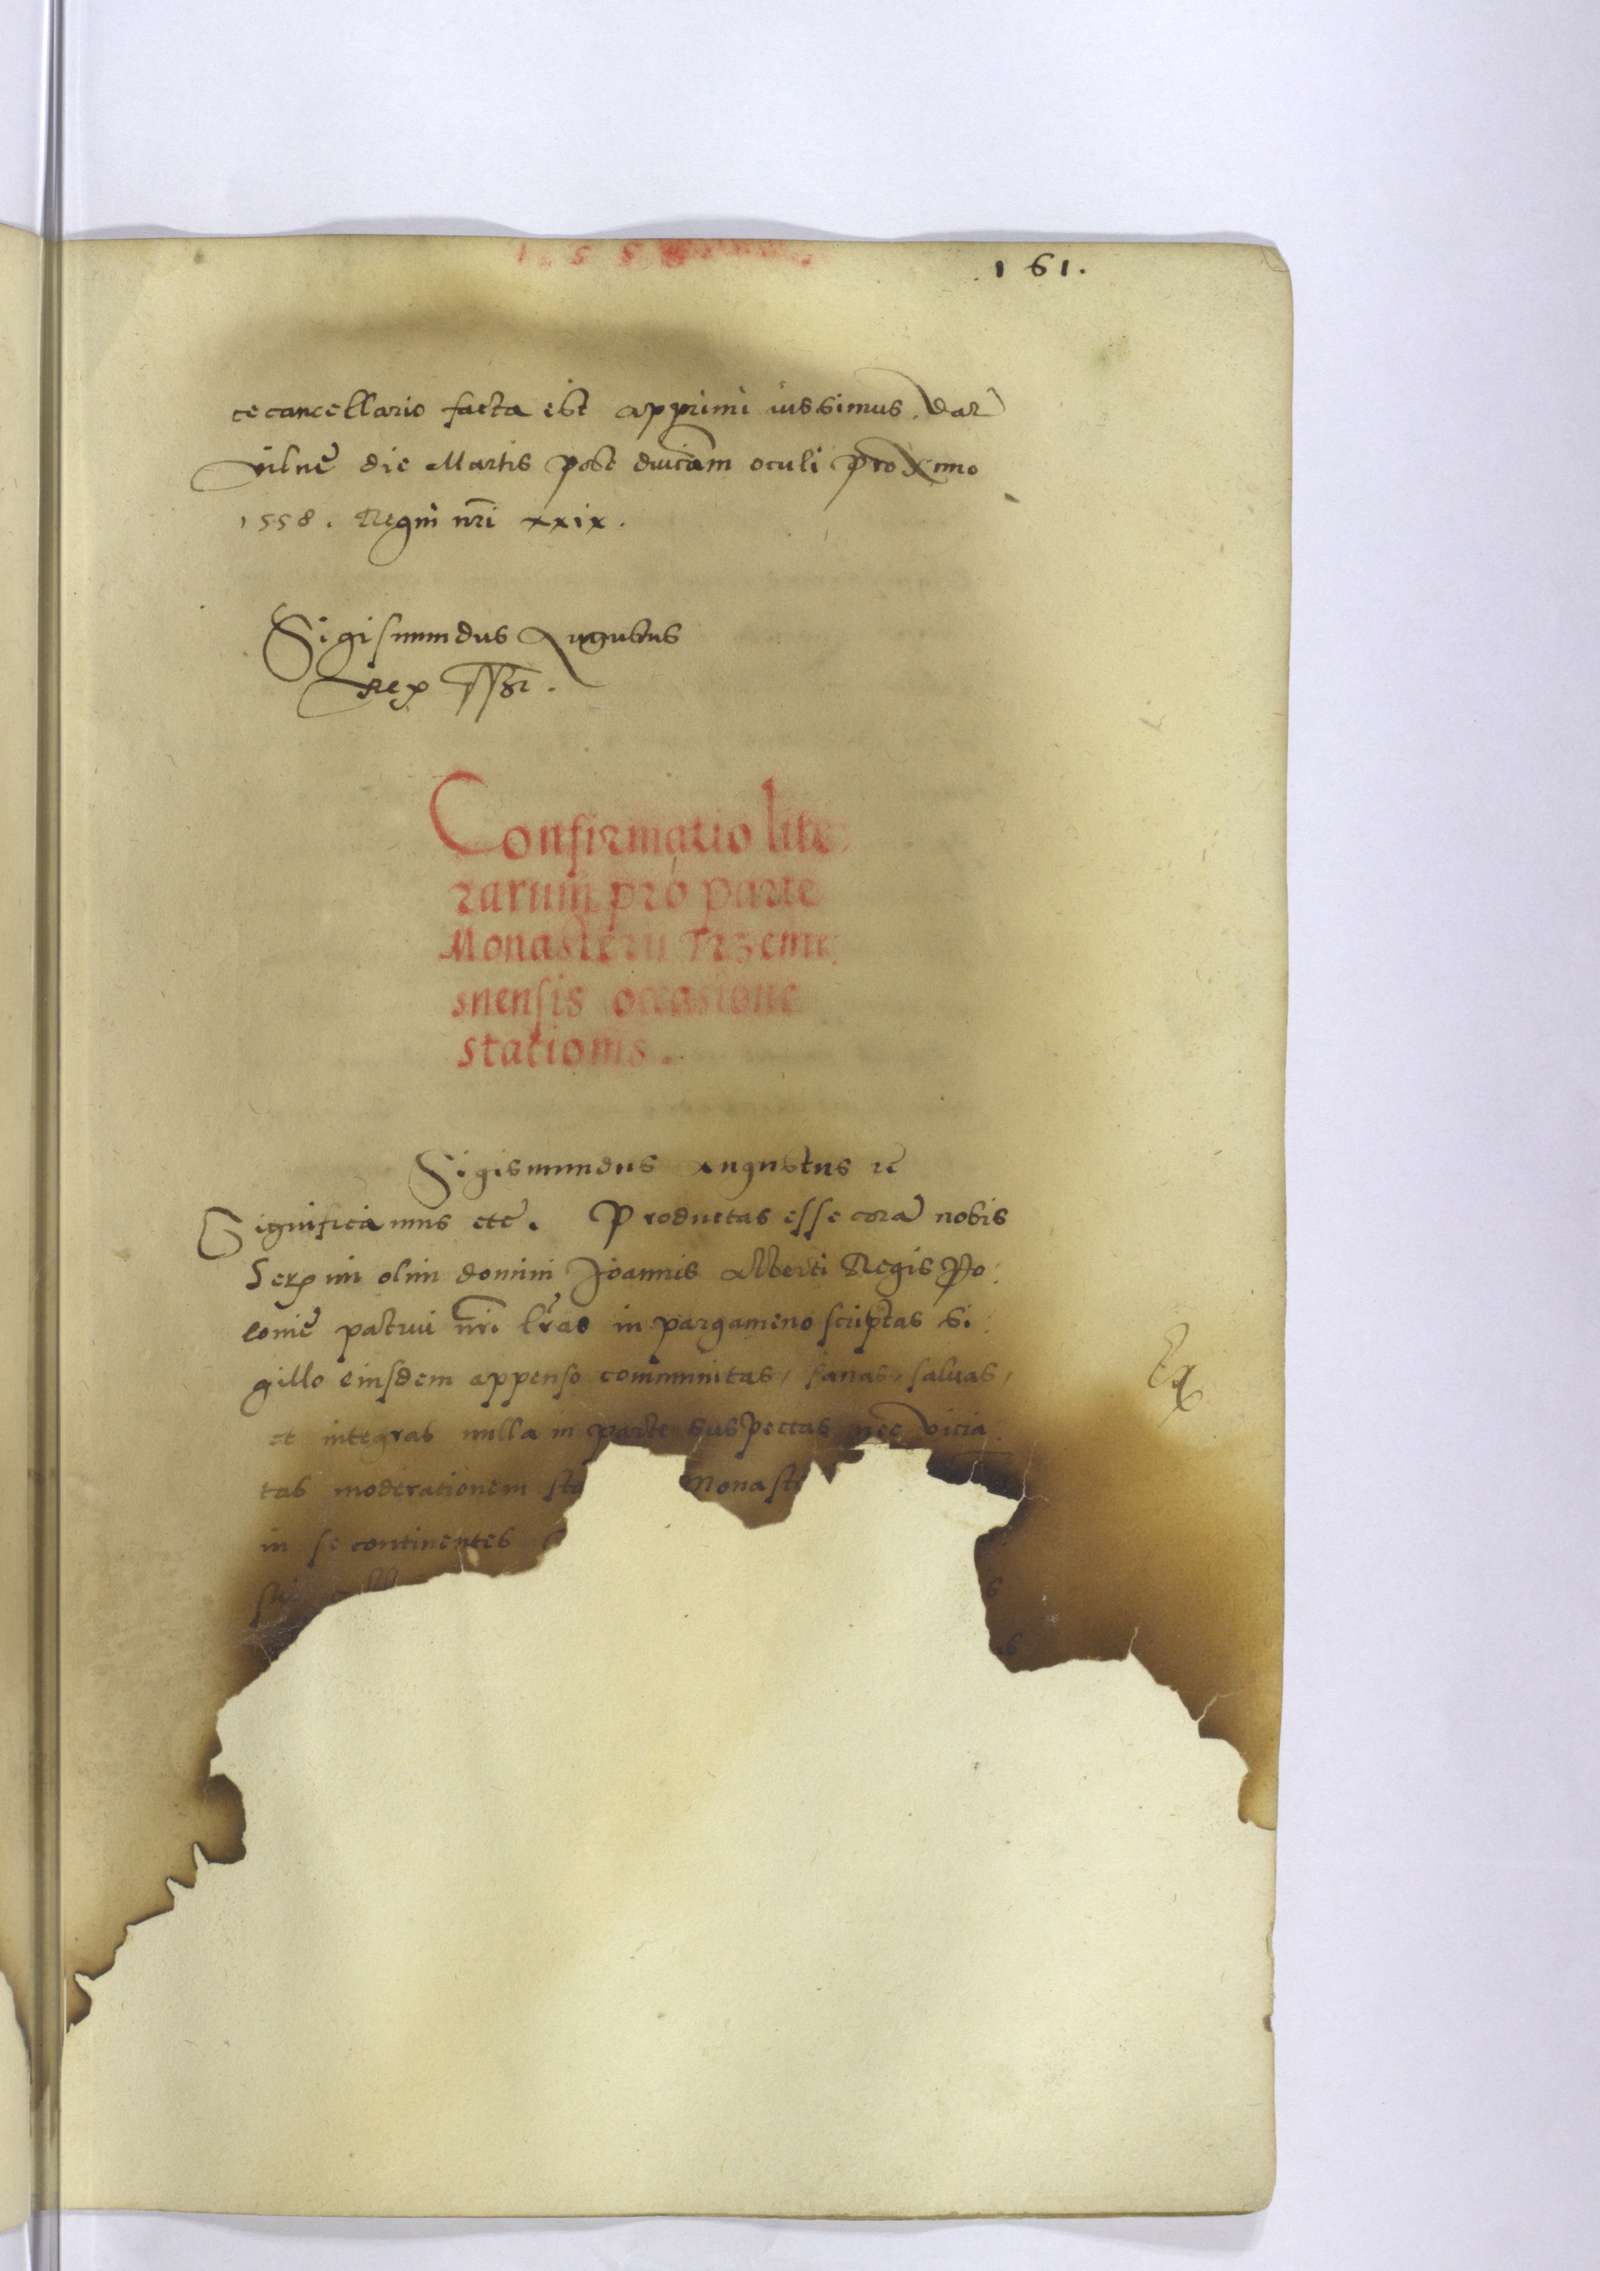 155
161.
cecancellario facta est apprimi iussimus. Dat
vilnę die Martis post dnicam oculi proximo
1558. Regni nri xxix.
Sigismundus Augustus
Rex
Confirmatio lite
rarum pro parte
Monasterii Trzeme
snensis occasione
stationis.
Sigismundus Augustus
Significamus etc. Productas esse corã nobis
olim domini Joannis Alberti Regis Po:
lonię patrui nri lras in pargameno scriptas si:
gillo eiusdem appenso communitas, sanas, saluas,
et integras nulla in parte suspectas nec vicia:
tas moderationem sta Monast
in se continentes
s